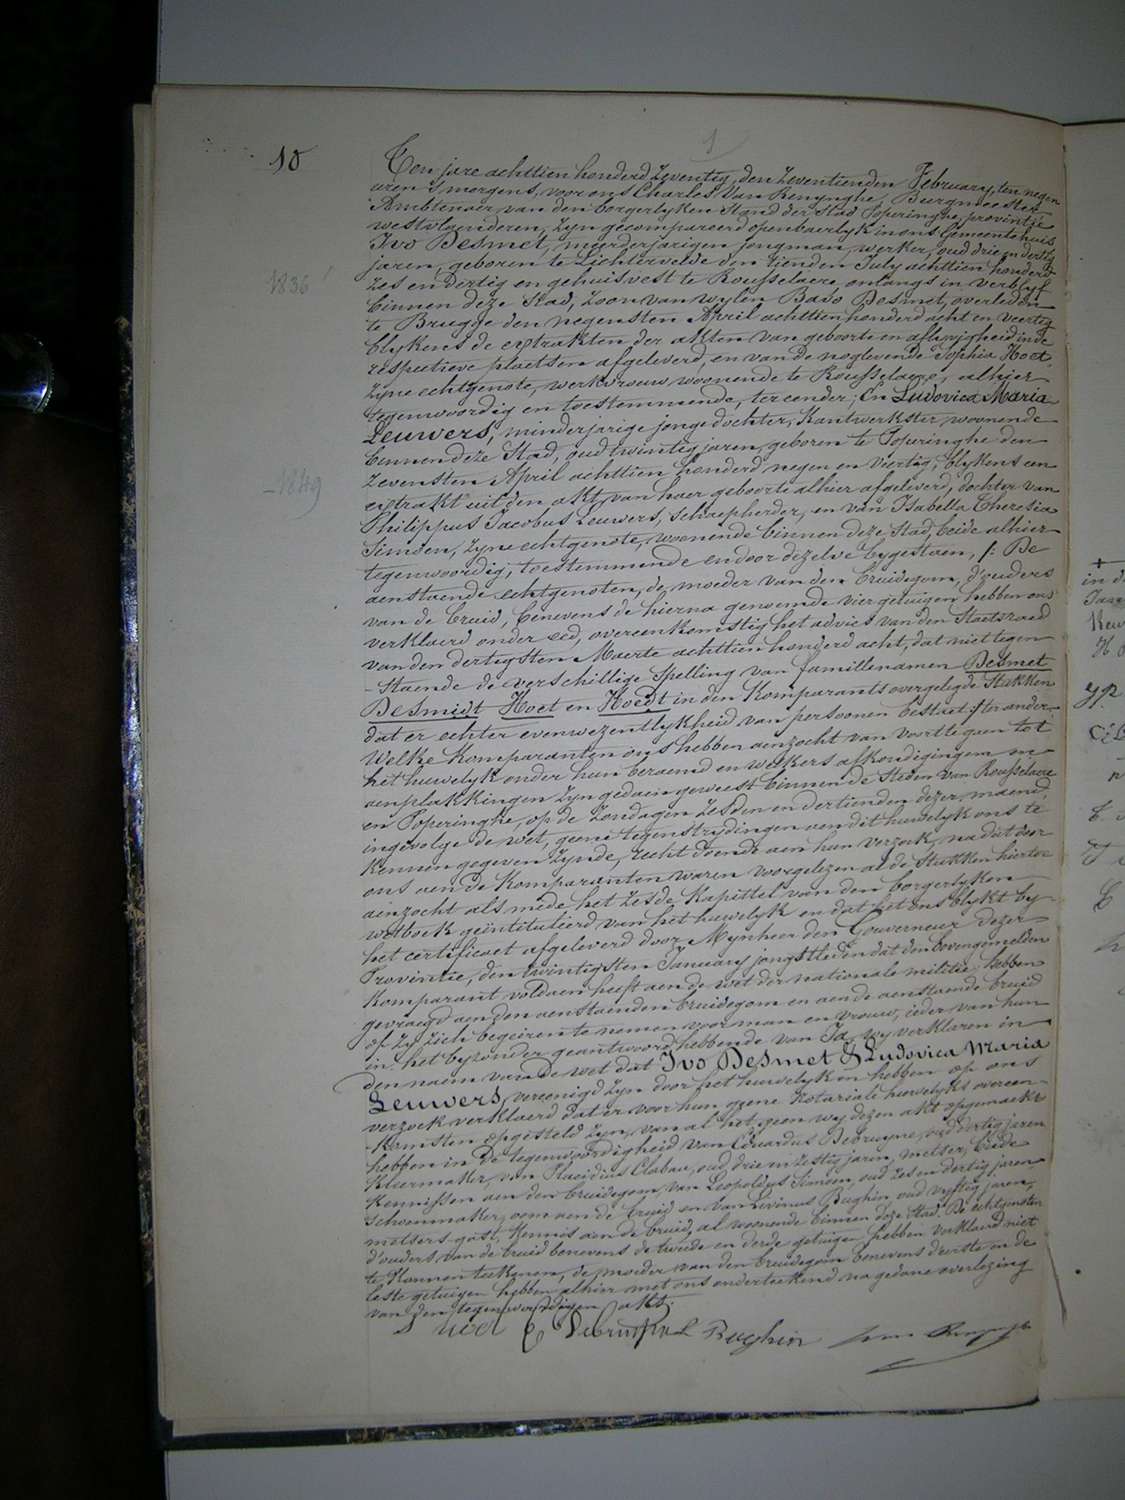 10
1
Ten jare achttien honderd zeventig, den zeventienden February, ten negen
uren 's morgens, voor ons Charles Van Renynghe, Burgmeester
Ambtenaer van den borgerlyken Stand der Stad Poperinghe, provintie
westvlaenderen, zyn gecompareerd openbaerlyk in ons Gemeentehuis
Ivo Desmet, meerderjarigen jongman, werker, oud drie en dertig
jaren, geboren te Lichtervelde den tienden July achttien honderd
1836
zes en dertig en gehuisvest te Rousselaere, onlangs in verblyf
binnen deze Stad, Zoon van wylen Bavo Desmet, overleden
te Brugge den negensten April achttien honderd acht en veertig
blykens de extrakten der akten van geboorte en aflyvigheid in de
respective plaetsen afgeleverd, en van de noglevende Sophia Hoet
zyne echtgenote, werkvrouw woonende te Rousselaere, alhier
tegenwoordig en toestemmende, ter eender; En Ludovica Maria
Leuwers, minderjarige jongedochter, Kantwerkster, woonende
binnen deze Stad, oud twintig jaren, geboren te Poperinghe den
1849
zevensten April achttien honderd negen en viertig, blykens een
extrakt uit den akt van haer geboorte alhier afgeleverd, dochter van
Philippus Jacobus Leuwers, Schaepherder, en van Isabella Theresia
Simoen, zyne echtgenote, woonende binnen deze Stad, beide alhier
tegenwoordig, toestemmende en door dezelve bygestaen, /: De
aenstaende echtgenoten, de moeder van den bruidegom, d'ouders
van de bruid, benevens de hierna genoemde vier getuigen hebben ons
verklaerd onder eed, overeenkomstig het advies van den Staetsraed
van den dertigsten Maerte achttien honderd acht, dat niet tegen-
staende de verschillige Spelling van famillenamen Desmet
Desmidt Hoet en Hoedt in den Komparants overgelegde Stukken
dat er echter evenwezentlykheid van persoonen bestaet :/ ter ander;
Welke Komparanten ons hebben aenzocht van voort te gaen tot
het huwelyk onder hun beraemd en welkers afkondigingen en
aenplakkingen zyn gedaen geweest binnen de Steden van Rousselaere
en Poperinghe, op de Zondagen zesden en dertienden dezer maend,
ingevolge de wet, geene tegenstrydingen aen dit huwelyk ons te
kennen gegeven zynde, recht doende aen hun verzoek, na dat door
ons aen de Komparanten waren voorgelezen al de Stukken hiertoe
aenzocht als mede het zesde Kapittel van den borgerlyken
wetboek geïntituleerd van het huwelyk en dat het ons blykt by
het certificaet afgeleverd door Mynheer den Gouverneur dezer
Provintie, den twintigsten January jongstleden dat den bovengemelden
Komparant voldaen heeft aen de wet der nationale militie, hebben
gevraegd aen den aenstaenden bruidegom en aen de aenstaende bruid
of zy zich begeiren te nemen voor man en vrouw, ieder van hun
in het byzonder geantwoord hebbende van Ja, wy verklaren in
den naem van de wet dat Ivo Desmet & Ludovica Maria
Leuwers, vereenigd zyn door het huwelyk en hebben op ons
verzoek verklaerd dat er voor hun geene Notariale huwelyks overeen-
komsten opgesteld zyn, van al het geen wy dezen akt opgemaekt
hebben in de tegenwoordigheid van Eduardus Debruyne, oud dertig jaren
kleermaker, van Plasidius Clabau, oud drie en zestig jaren, metser, beide
kennissen aen den bruidegom, van Leopoldus Simoen, oud zes en dertig jaren
schoenmaker, oom aen de bruid en van Livinus Bughin, oud vyftig jaren,
metsers gast, kennis aen de bruid, al woonende binnen deze Stad. De echtgenoten
d'ouders van de bruid benevens de tweede en derde getuigen hebben verklaerd niet
te konnen teekenen, de moeder van den bruidegom benevens d'eerste en de
leste getuigen hebben alhier met ons onderteekend na gedane overlezing
van den tegenwoordigen akt.
E Debruyne L Bughin